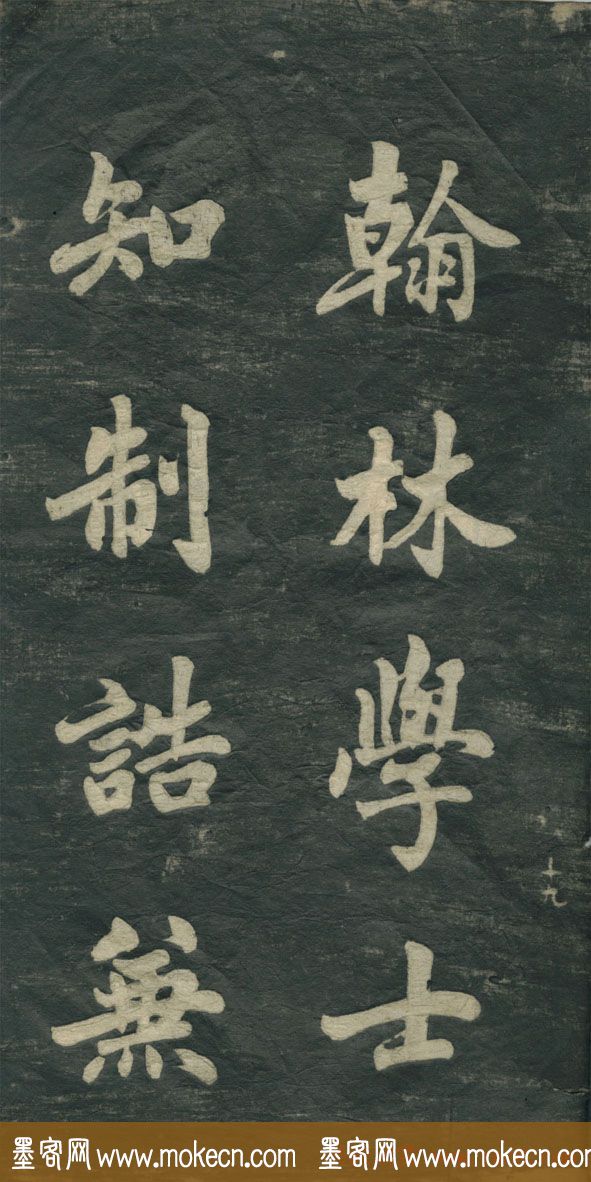 翰林學士
知制誥兼
十九
墨客网 www.mokecn.com 墨客网 www.mokecn.com